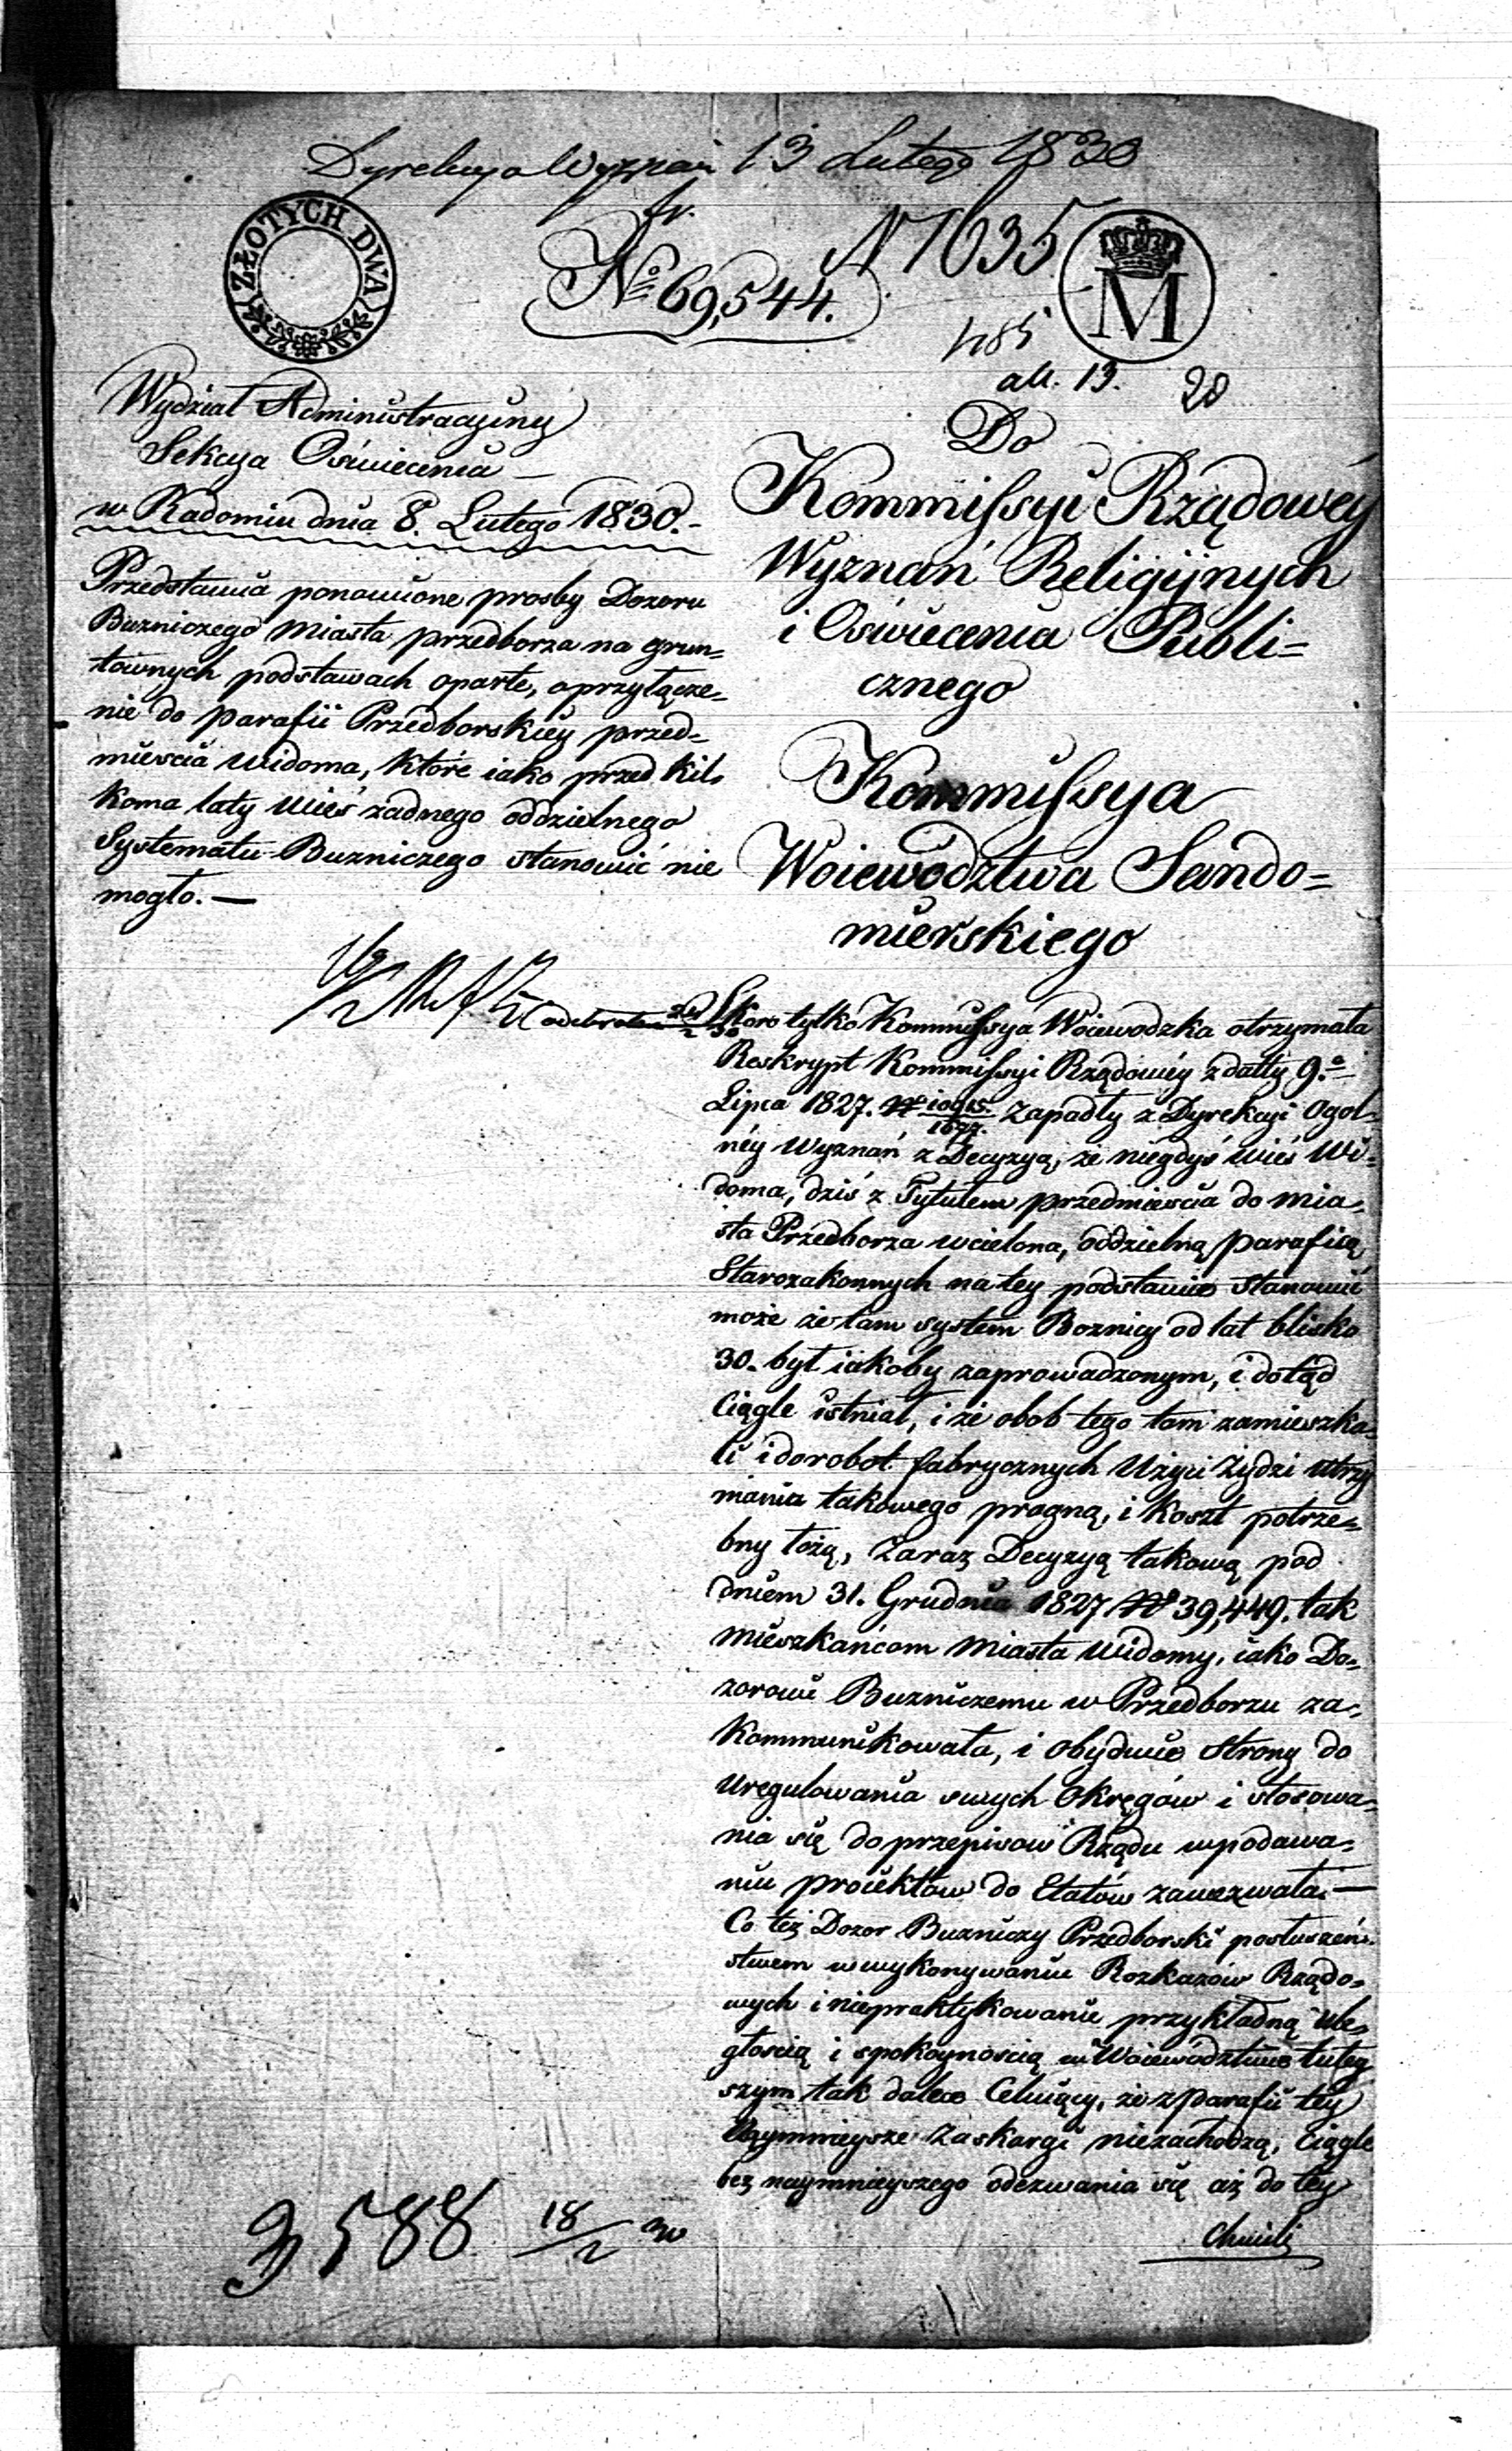 Dyrekcya Wyznań 13 Lutego 1830
N 1635
ZŁOTYCH DWA
fr.
No 69,544.
M
485
all. 13.
28
Wydział Administracyiny
Sekcya Oświecenia —
w Radomiu dnia 8. Lutego 1830.-
Przedstawia ponowione prosby Dozoru
Buzniczego Miasta przedborza na grun=
townych podstawach oparte, o przyłącze=
nie do parafii Przedborskiey przed=
mieścia widoma, które iako przed kil=
koma laty wieś żadnego oddzielnego
Systematu Buzniczego stanowić nie
mogło. —
Do
Kommissyi Rządowéy
Wyznań Religiynych
i Oświecenia Publi=
cznego
Kommissya
Woiewodztwa Sando=
mierskiego
odebrałem
Skoro tylko Kommissya Woiewodzka otrzymała
Reskrypt Kommissyi Rządowéy z datty 9.o
Lipca 1827. No zapadły z Dyrekcyi Ogol=
néy Wyznań z Decyzyą, że niegdyś wieś Wi=
doma, dziś z Tytułem przedmieścia do mia=
sta Przedborza wcielona, oddzielną parafiią
Starozakonnych na tey podstawie stanowić
może że tam system Boznicy od lat blisko
30. był iakoby zaprowadzonym, i dotąd
Ciągle istniał, i że obok tego tam zamieszka=
li i do robot fabrycznych Użyci Żydzi utrzy
mania takowego pragną, i koszt potrze=
bny łożą, Zaraz Decyzyą takową pod
dniem 31. Grudnia 1827 No 39,449. tak
Mieszkańcom Miasta Widomy, iako Do=
zorowi Buzniczemu w Przedborzu za=
kommunikowała, i obydwie Strony do
Uregulowania swych Okręgów i stosowa=
nia się do przepisow Rządu w podawa=
niu proiektow do Etatów zawezwała. —
Co też Dozor Buzniczy Przedborski posłuszeń=
stwem w wykonywaniu Rozkazów Rządo=
wych i niepraktykowanie przykładną ule=
głoscią i spokoynoscią w Woiewodztwie tutey
szym tak dalece Celuiący, że z parafii tey
Naymnieysze zaskargi niezachodzą, Ciągle
bez naymnieyszego odezwania się aż do tey
Chwili
3588 18/2 30